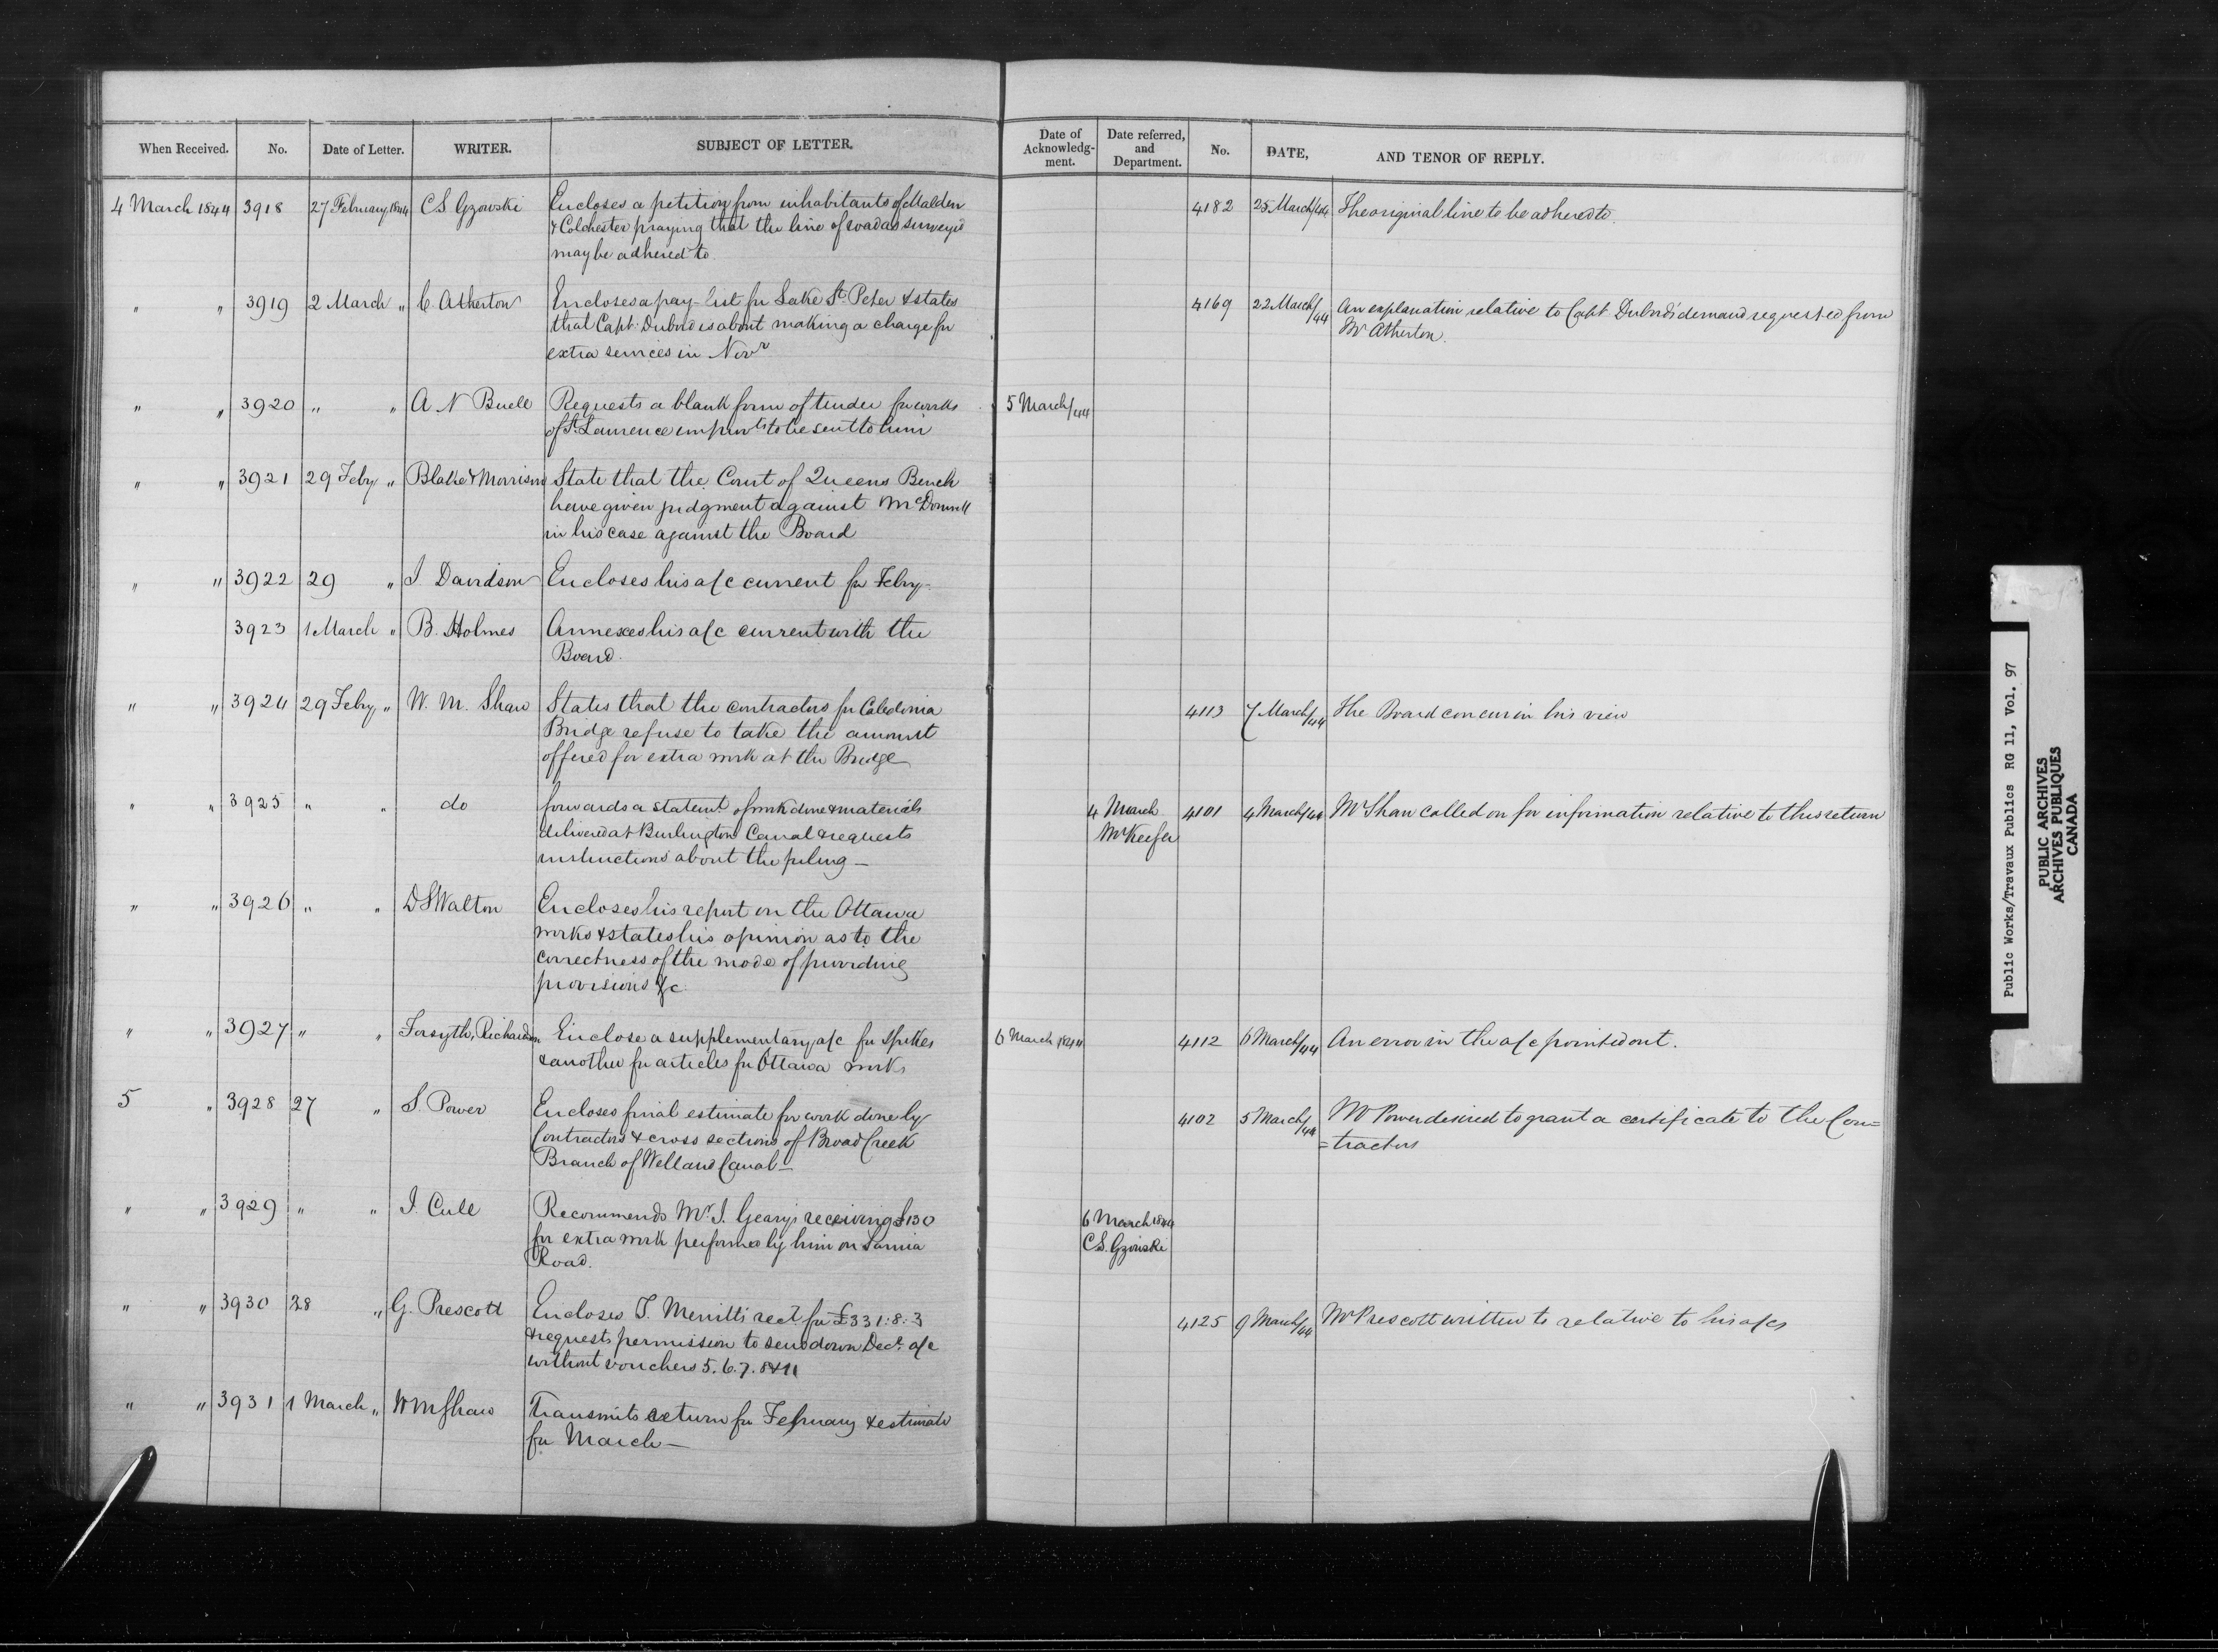 When Received. No. Date of Letter. WRITER. SUBJECT OF LETTER. Date of Acknowledg-ment. Date referred, and Department. No. DATE, AND TENOR OF REPLY.
4 March 1844 3918 27 February 1844 C S Gzowski Encloses a petition from inhabitants of Malden 4182 25 March/44 The original line to be adhered to.
& Colchester praying that the line of road as surveyed
may be adhered to.
" " 3919 2 March " C. Atherton Encloses a pay-list for Lake St. Peter & states 4169 22 March/44 An explanation relative to Capt Dubord's demand requested from
that Capt. Dubord is about making a charge for Mr Atherton.
extra services in Novr
" " 3920 " " A N Buell Requests a blank form of tender for works 5 March/44
of St. Lawrence improvts to be sent to him
" " 3921 29 Feby " Blake & Morrison State that the Court of Queens Bench
have given judgment against McDonnell
in his case against the Board
" " 3922 29 " J. Davidson Encloses his a/c current for Feby-
3923 1 March " B. Holmes Annexes his a/c current with the
Board.
" " 3924 29 Feby " W. M. Shaw States that the contractors for Caledonia 4113 7 March/44 The Board concur in his view
Bridge refuse to take the amount
offered for extra work at the Bridge
" " 3925 " " do forwards a statemt. of work done & materials 4 March 4101 4 March/44 Mr Shaw called on for information relative to this return
delivered at Burlington Canal & requests Mr Keefer
instructions about the piling —
" " 3926 " " D S Walton Encloses his report on the Ottawa
works & states his opinion as to the
correctness of the mode of providing
provisions &c.
" " 3927 " " Forsyth, Richardson Enclose a supplementary a/c for spikes 6 March 1844 4112 6 March/44 An error in the a/c pointed out.
& another for articles for Ottawa works
5 " 3928 27 " S. Power Encloses final estimate for work done by 4102 5 March/44 Mr Power desired to grant a certificate to the Con=
Contractors & cross sections of Broad Creek =tractors
Branch of Welland Canal —
" " 3929 " " J. Cull Recommends Mr. J. Geary's receiving £130 6 March 1844
for extra work performed by him on Sarnia C.S. Gzowski
Road.
" " 3930 28 " G. Prescott Encloses T. Merritt's rect for £331:8:3 4125 9 March/44 Mr Prescott written to relative to his a/cs
& requests permission to send down Decr. a/c
without vouchers 5. 6. 7. 8 & 11
" " 3931 1 March " W M Shaw Transmits return for February & estimate
for March —
Public Works/Travaux Publics RG 11, Vol. 97
PUBLIC ARCHIVES
ARCHIVES PUBLIQUES
CANADA